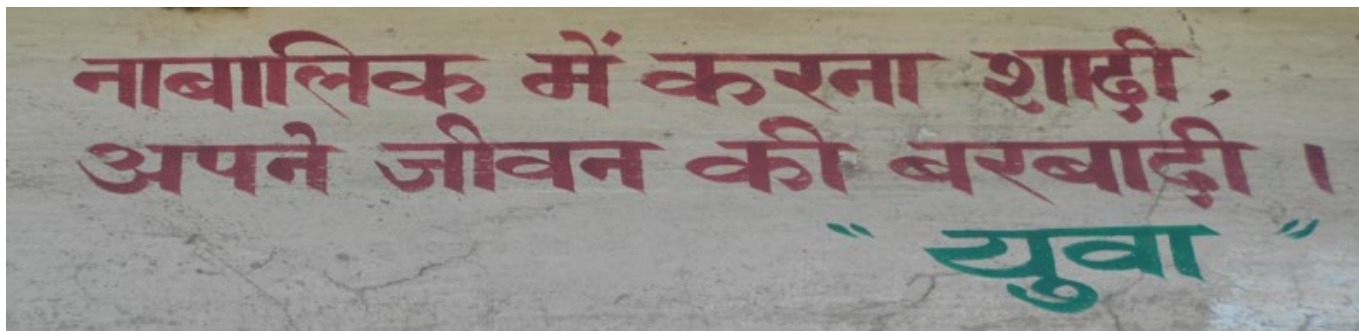 नाबालिक में करना शादी,
अपने जीवन की बरबादी ।
" युवा "